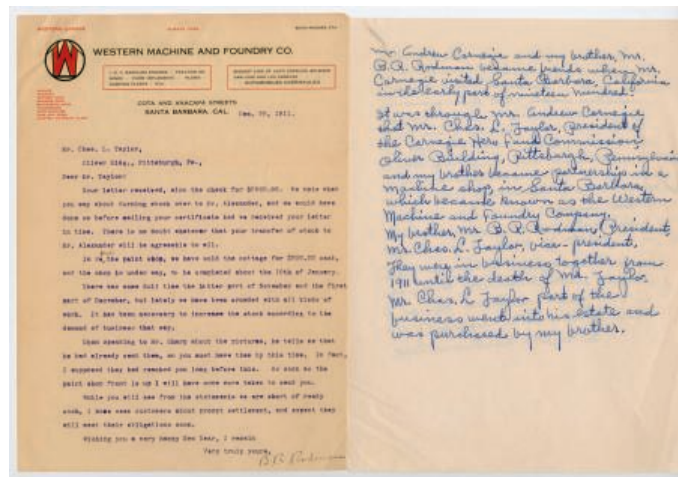 W
WESTERN MACHINE AND FOUNDRY CO.
COTA AND ANACAPA STREETS
SANTA BARBARA, CAL. Dec. 30, 1911.
Mr. Chas. L. Taylor,
Oliver Bldg., Pittsburgh, Pa.,
Dear Mr. Taylor:
Your letter received, also the check for $5000.00. We note what
you say about turning stock over to Mr. Alexander, and we would have
done so before mailing your certificate had we received your letter
in time. There is no doubt whatever that your transfer of stock to
Mr. Alexander will be agreeable to all.
In re the paint shop, we have sold the cottage for cash,
and the shop is under way, to be completed about the 15th of January.
There was some dull time the latter part of November and the first
part of December, but lately we have been crowded with all kinds of
work. It has been necessary to increase the stock according to the
demand of business that way.
Upon speaking to Mr. about the pictures, he tells me that
he had already sent them, so you must have them by this time. In fact,
I supposed they had reached you long before this. As soon as the
paint shop front is up I will have some more taken to send you.
While you will see from the statements we are short of ready
cash, I have seen customers about prompt settlement, and expect they
will meet their obligations soon.
Wishing you a very happy New Year, I remain
Very truly yours,
B.R. Rodman
Mr. Andrew Carnegie and my brother, Mr.
B.R. Rodman became friends when Mr.
Carnegie visited Santa Barbara, California
in the early part of nineteen hundred.
It was through Mr. Andrew Carnegie
that Mr. Chas. L. Taylor, President of
the Carnegie Hero Fund Commission
Oliver Building, Pittsburgh, Pennsylvania
and my brother became partnership in a
machine shop in Santa Barbara,
which became known as the Western
Machine and Foundry Company.
My brother, Mr. B.R. Rodman, President,
Mr. Chas. L. Taylor, vice-president.
They were in business together from
1911 until the death of Mr. Taylor.
Mr. Chas. L. Taylor part of the
business went into his estate and
was purchased by my brother.